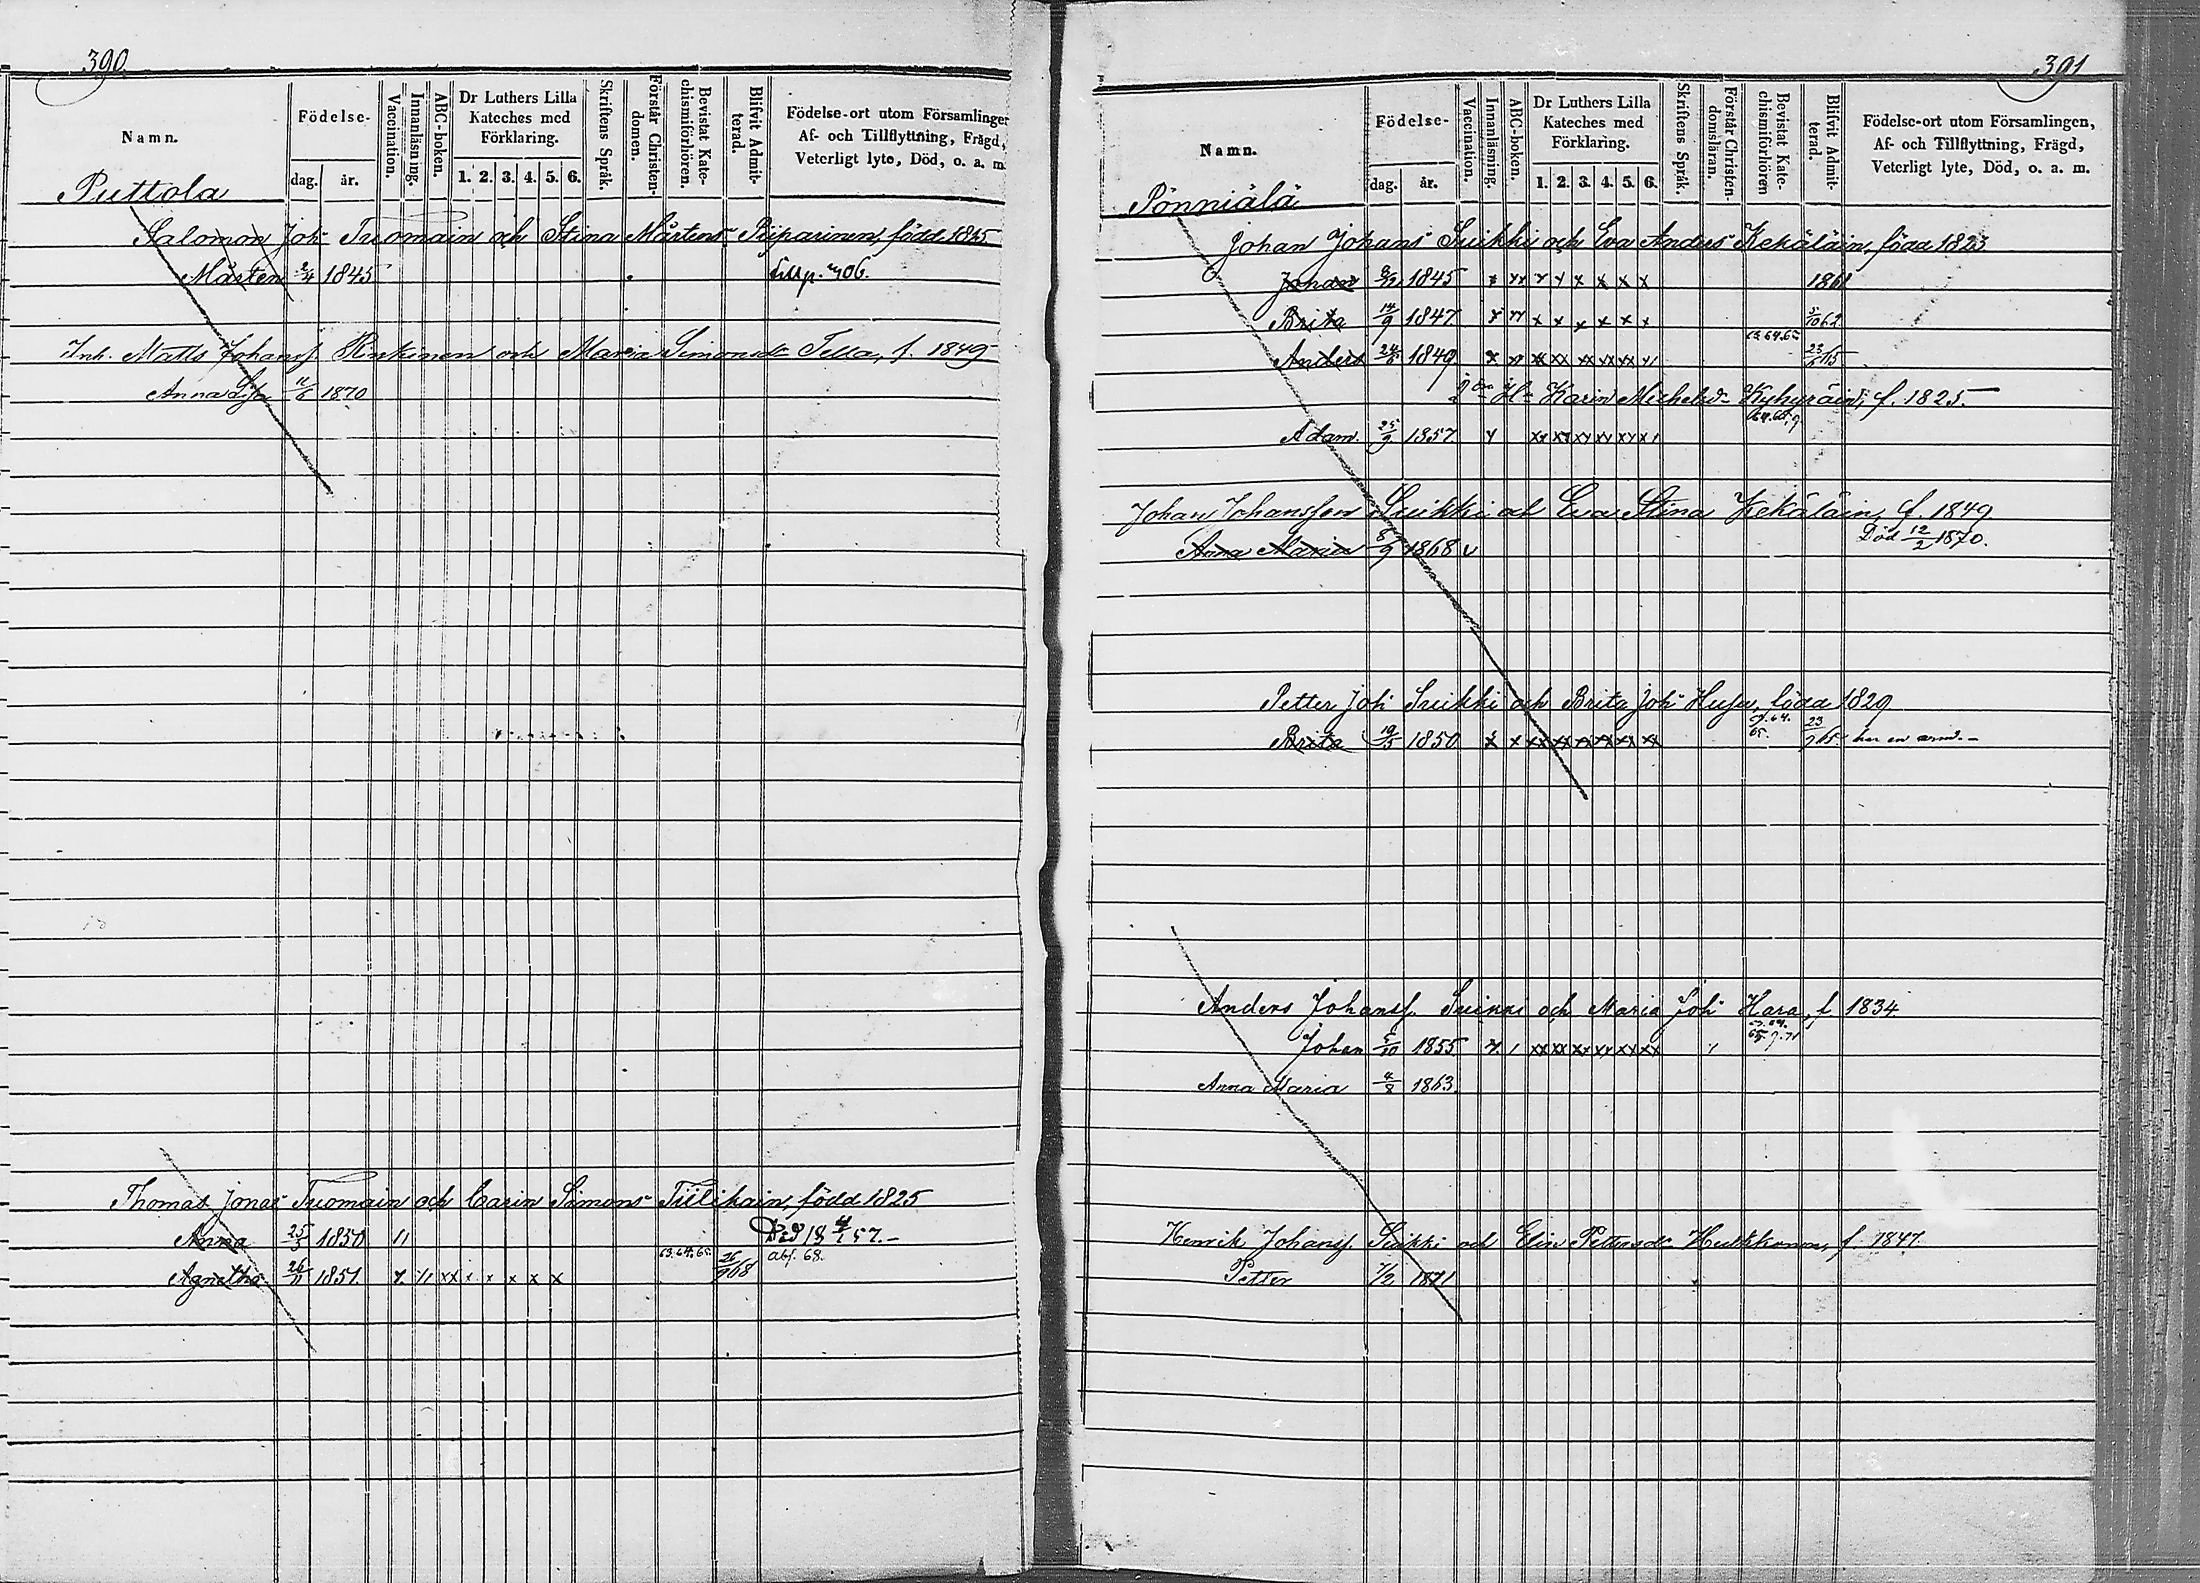 390
Namn.
Födelse-
dag. år.
Vaccination.
Innanläsning.
ABC-boken.
Dr Luthers Lilla
Kateches med
Förklaring.
1. 2. 3. 4. 5. 6.
Skriftens Språk.
Förstår Christen-
domen.
Bevistat Kate-
chismiförhören.
Blifvit Admit-
terad.
Födelse-ort utom Församlingen
Af- och Tillflyttning, Frägd,
Veterligt lyte, Död, o. a. m.
Puttola
Salomon Joh Tuomain och Stina Mårtens Piiparinen, född 1825
Mårten 1845 till p. 406.
Inh. Matts Johanss. Rinkinen och Maria Simonsdr Tella, f. 1849
Anna Lisa 11/6 1870
Thomas Jonas Tuomain och Carin Simons Tiilikain, född 1825
Anna 25/3 1850 11
63.64.65. abs. 68.
Agnetha 26/11 1851. x x x x x x
391
Namn.
Födelse-
dag. år.
Vaccination.
Innanläsning.
ABC-boken.
Dr Luthers Lilla
Kateches med
Förklaring.
1. 2. 3. 4. 5. 6.
Skriftens Språk.
Förstår Christen-
domsläran.
Bevistat Kate-
chismiförhören
Blifvit Admit-
terad.
Födelse-ort utom Församlingen,
Af- och Tillflyttning, Frägd,
Veterligt lyte, Död, o. a. m.
Pönniälä
Johan Johans Suikki och Eva Anders Kekäläin, född 1823
Johan 1845 x x x x x x 1861
Brita 14/9 1847 x x x x x x 5/10 62
63.64.65.
Anders 24/6 1849 x xx xx xx xx xx
2dra H. Karin Michelsdr Kyhyräin, f. 1825.
Adam. 25/9 1857
Johan Johansson Suikki och Eva Stina Kekäläin, f. 1849.
Anna Maria 8/9 1868 v Död 12/2 1870.
Petter Joh Suikki och Brita Joh Huja, född 1829
Brita 19/5 1850 x x xx xx xx xx xx xx har en arm. -
Anders Johanss. Suikki och Maria Joh Hara, f 1834
Johan 5/10 1855 xx xx xx xx xx xx
Anna Maria 4/8 1863.
Henrik Johanss. Suikki och Elin Pettersdr Hulkkonen, f. 1847.
Petter 7/2 1871